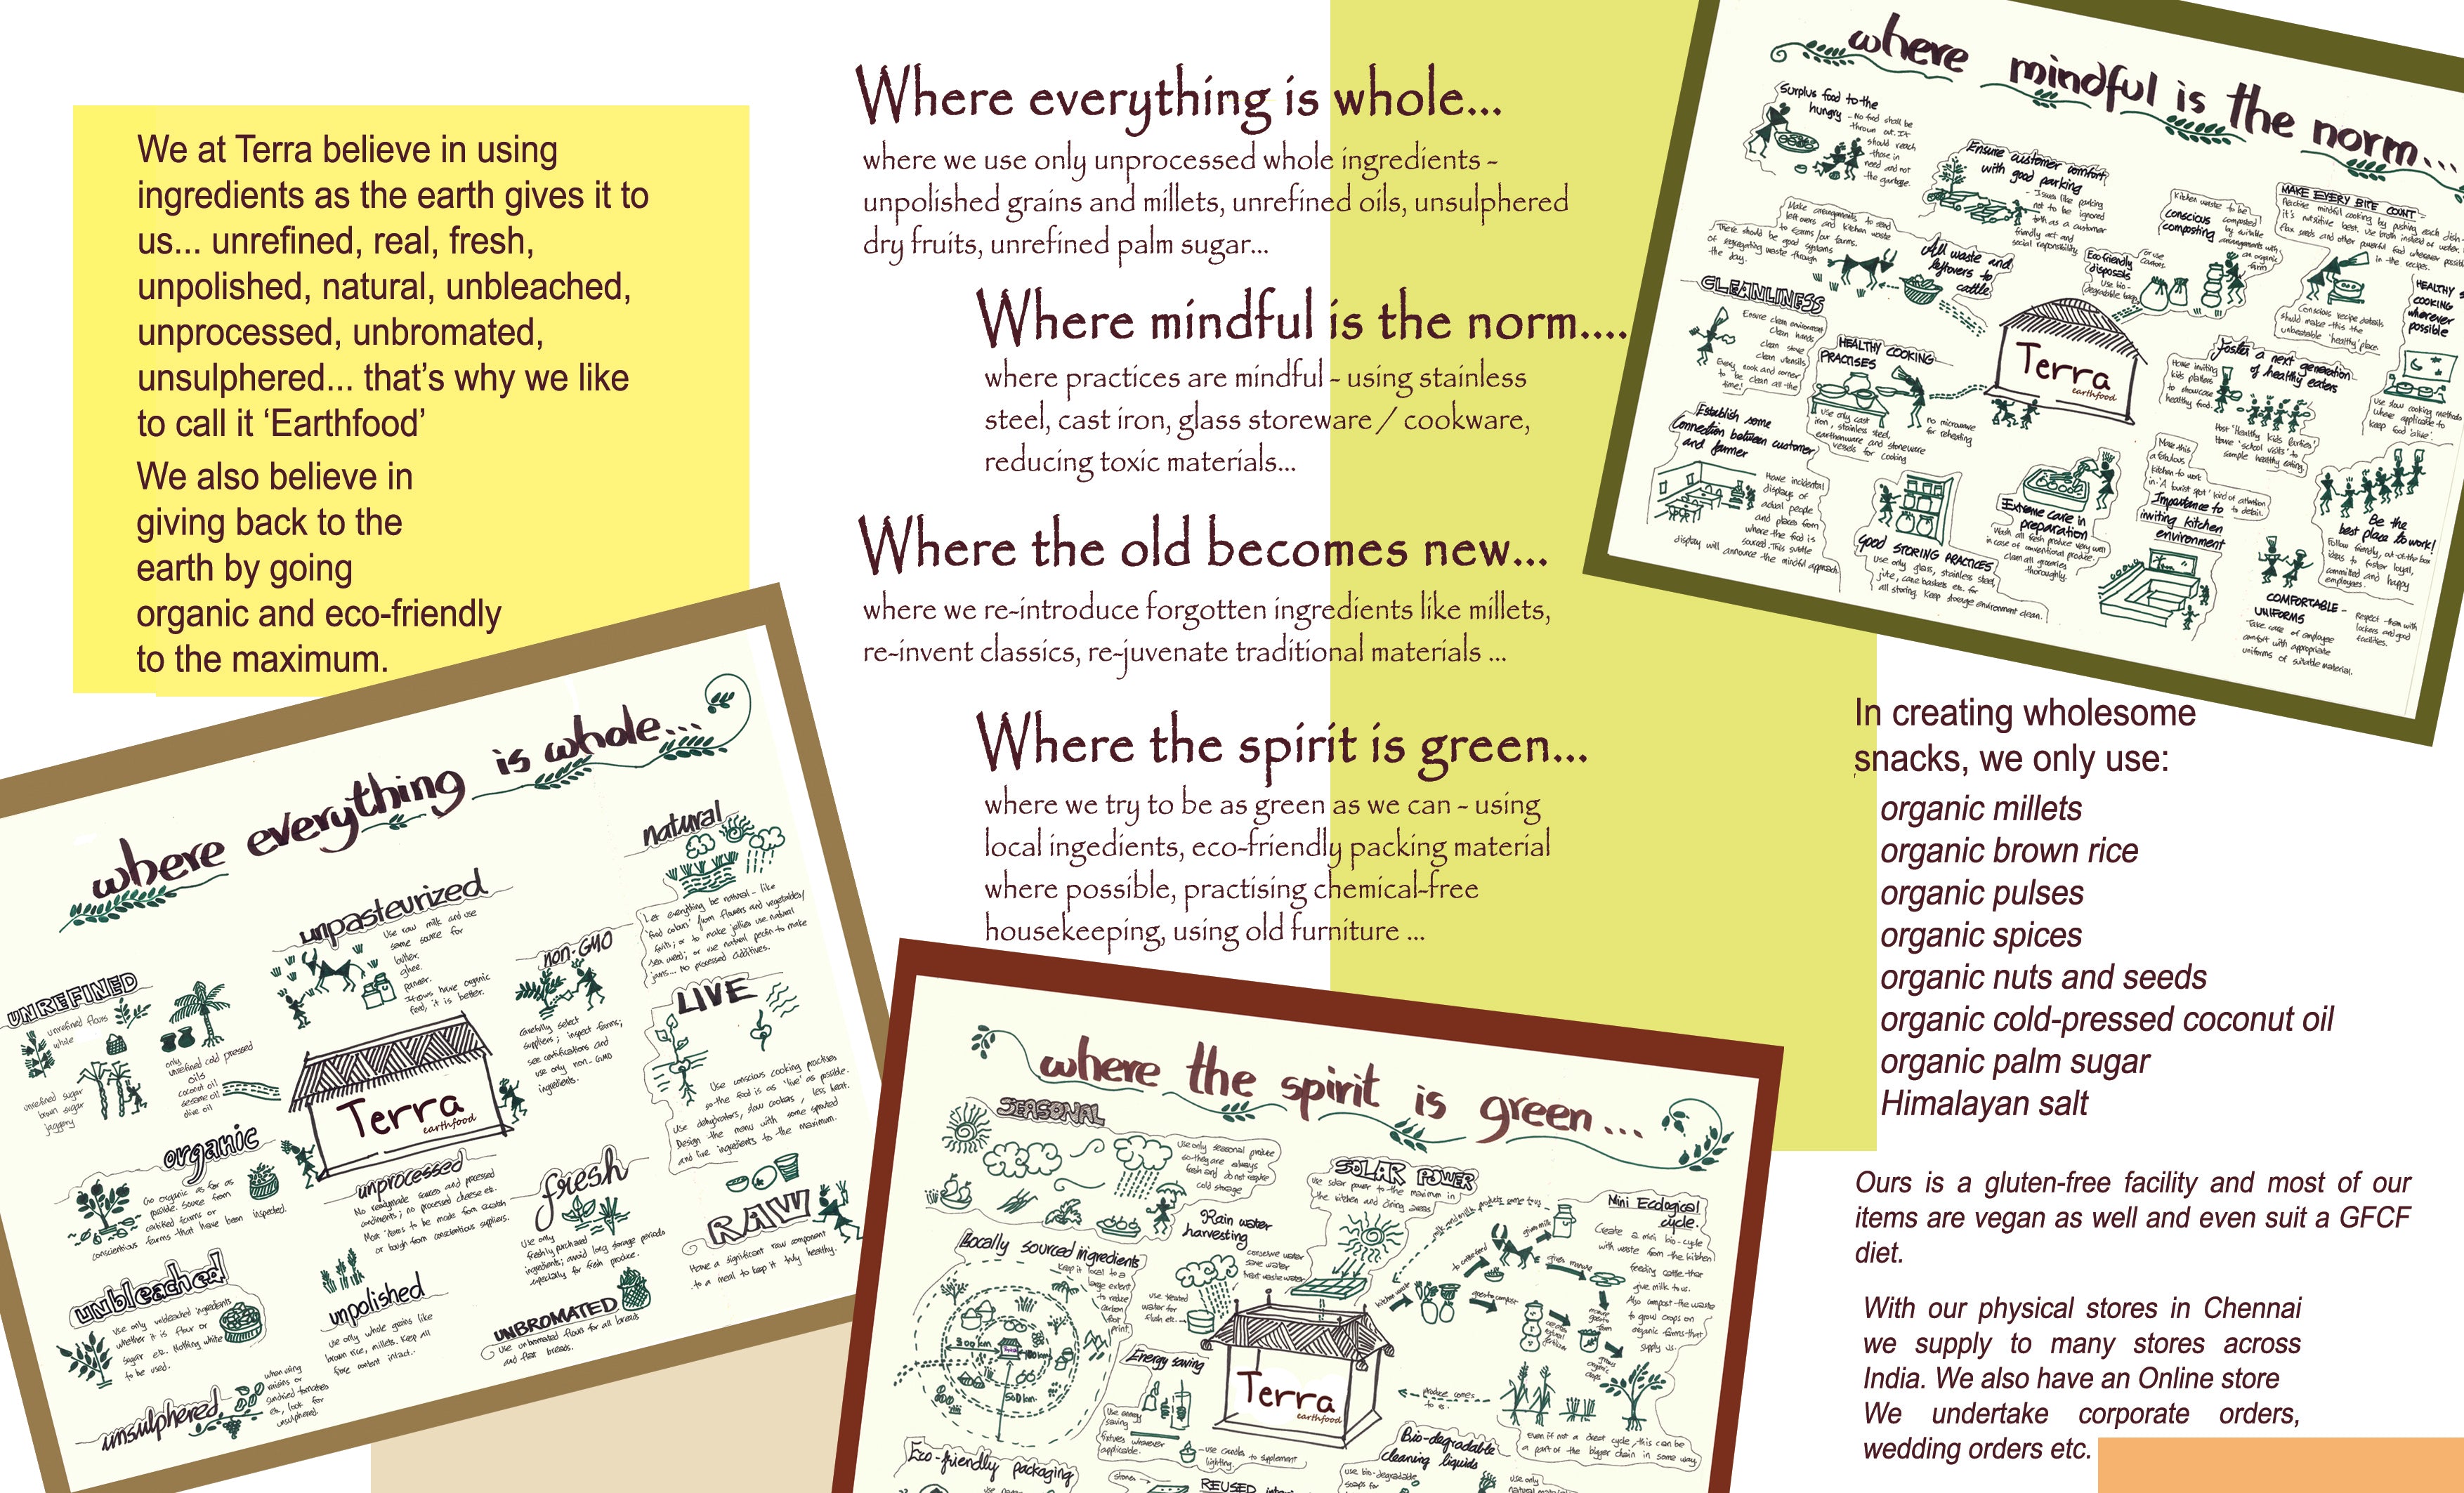 We at Terra believe in using
ingredients as the earth gives it to
us... unrefined, real, fresh,
unpolished, natural, unbleached,
unprocessed, unbromated,
unsulphered... that's why we like
to call it ‘Earthfood’
We also believe in
giving back to the
earth by going
organic and eco-friendly
to the maximum.
Where everything is whole...
where we use only unprocessed whole ingredients -
unpolished grains and millets, unrefined oils, unsulphered
dry fruits, unrefined palm sugar...
Where mindful is the norm....
where practices are mindful - using stainless
steel, cast iron, glass storeware / cookware,
reducing toxic materials...
Where the old becomes new...
where we re-introduce forgotten ingredients like millets,
re-invent classics, re-juvenate traditional materials ...
Where the spirit is green...
where we try to be as green as we can - using
local ingedients, eco-friendly packing material
where possible, practising chemical-free
housekeeping, using old furniture ...
where mindful is the norm...
Surplus food to the
hungry - No food shall be
thrown out. It
should reach
those in
need and not
the garbage.
Ensure customer comfort
with good parking
- Issues like parking
not to be ignored
both as a customer
friendly act and
social responsibility
Kitchen waste to be
conscious composted
composting by suitable
arrangements with
an organic
farm
MAKE EVERY BITE COUNT
Make arrangements to send
leftovers and kitchen waste
to farms/our farms.
There should be good systems
of segregating waste through
the day.
All waste and
leftovers to
cattle
Eco friendly
disposals
Use bio-
degradable bags
or use
cartons
CLEANLINESS
Ensure clean environment
clean hands
clean stove
clean utensils
Every nook and corner
to be clean all the
time!
HEALTHY COOKING
PRACTISES
Use only cast
iron, stainless steel,
earthenware and stoneware
vessels for cooking
no microwave
for reheating
Terra
earthfood
Conscious recipe details
should make this the
unbeatable 'healthy' place.
HEALTHY
COOKING
wherever
possible
Use slow cooking methods
where applicable to
keep food 'alive'.
Foster a next generation
of healthy eaters
Have inviting
kids platters
to showcase
healthy food.
Host 'Healthy Kids Parties'
Have 'school visits' to
sample healthy eating.
Establish some
Connection between customer
and farmer
Have incidental
displays of
actual people
and places from
where the food is
sourced. This subtle
display will announce the mindful approach.
Good STORING PRACTICES
use only glass, stainless steel,
jute, cane baskets etc. for
all storing. Keep storage environment clean.
Extreme care in
preparation
Wash all fresh produce very well
in case of conventional produce.
clean all groceries
thoroughly.
Make this
a fabulous
kitchen to work
in. 'A tourist spot' kind of attention
to detail.
Importance to
inviting kitchen
environment
Be the
best place to work!
Follow friendly, out-of-the box
ideas to foster loyal,
committed and happy
employees.
COMFORTABLE -
UNIFORMS
Take care of employee
comfort with appropriate
uniforms of suitable material.
Respect them with
lockers and good
facilities.
where everything is whole...
natural
Let everything be natural - like
'food colours' from flowers and vegetables/
fruits; or to make jellies use natural
sea weed; or use natural pectin to make
jams... No processed additives.
unpasteurized
Use raw milk and use
same source for
butter.
ghee.
paneer.
If cows have organic
feed, it is better.
non-GMO
Carefully select
suppliers; inspect farms;
see certifications and
use only non-GMO
ingredients.
UNREFINED
unrefined flours
whole
only
unrefined cold pressed
oils
coconut oil
sesame oil
olive oil
unrefined sugar
brown sugar
jaggery
LIVE
Use conscious cooking practises
so the food is as 'live' as possible.
Use dehydrators, slow cookers, less heat.
Design the menu with some sprouted
and live ingredients to the maximum.
Terra
earthfood
organic
Go organic as far as
possible. Source from
certified farms or
conscientious farms that have been inspected.
unprocessed
No readymade sauces and processed
condiments; no processed cheese etc.
Most items to be made from scratch
or bough from conscientious suppliers.
fresh
Use only
freshly purchased
ingredients; avoid long storage periods
specially for fresh produce.
RAW
Have a significant raw component
to a meal to keep it truly healthy.
unbleached
Use only unbleached ingredients
whether it is flour or
sugar etc. Nothing white
to be used.
unpolished
use only whole grains like
brown rice, millets. Keep all
fibre content intact.
UNBROMATED
Use unbromated flours for all breads
and flat breads.
unsulphered
when using
raisins or
sundried tomatoes
etc, look for
unsulphered.
where the spirit is green...
SEASONAL
Use only seasonal produce
so they are always
fresh and do not require
cold storage
SOLAR POWER
Use solar power to the maximum in
the kitchen and dining areas
Rain water
harvesting
conserve water
save water
treat waste water
use treated
water for
flush etc.
Mini Ecological
cycle.
Create a mini bio-cycle
with waste from the kitchen
feeding cattle that
give milk to us.
Also compost the waste
to grow crops on
organic farms that
supply us.
kitchen waste
gives milk
gives manure
Locally sourced ingredients
Keep it local to a
large extent
to reduce
carbon
foot
print.
300 km
100 km
500 km.
Energy saving
Use energy
saving
fixtures wherever
applicable.
- use candles to supplement
lighting.
Terra
earthfood
produce comes
to us.
Even if not a direct cycle, this can be
a part of the bigger chain in some way.
Bio-degradable
cleaning liquids
use bio-degradable
soaps for
use only
Eco-friendly packaging
stones
REUSED
In creating wholesome
snacks, we only use:
organic millets
organic brown rice
organic pulses
organic spices
organic nuts and seeds
organic cold-pressed coconut oil
organic palm sugar
Himalayan salt
Ours is a gluten-free facility and most of our
items are vegan as well and even suit a GFCF
diet.
With our physical stores in Chennai
we supply to many stores across
India. We also have an Online store
We undertake corporate orders,
wedding orders etc.